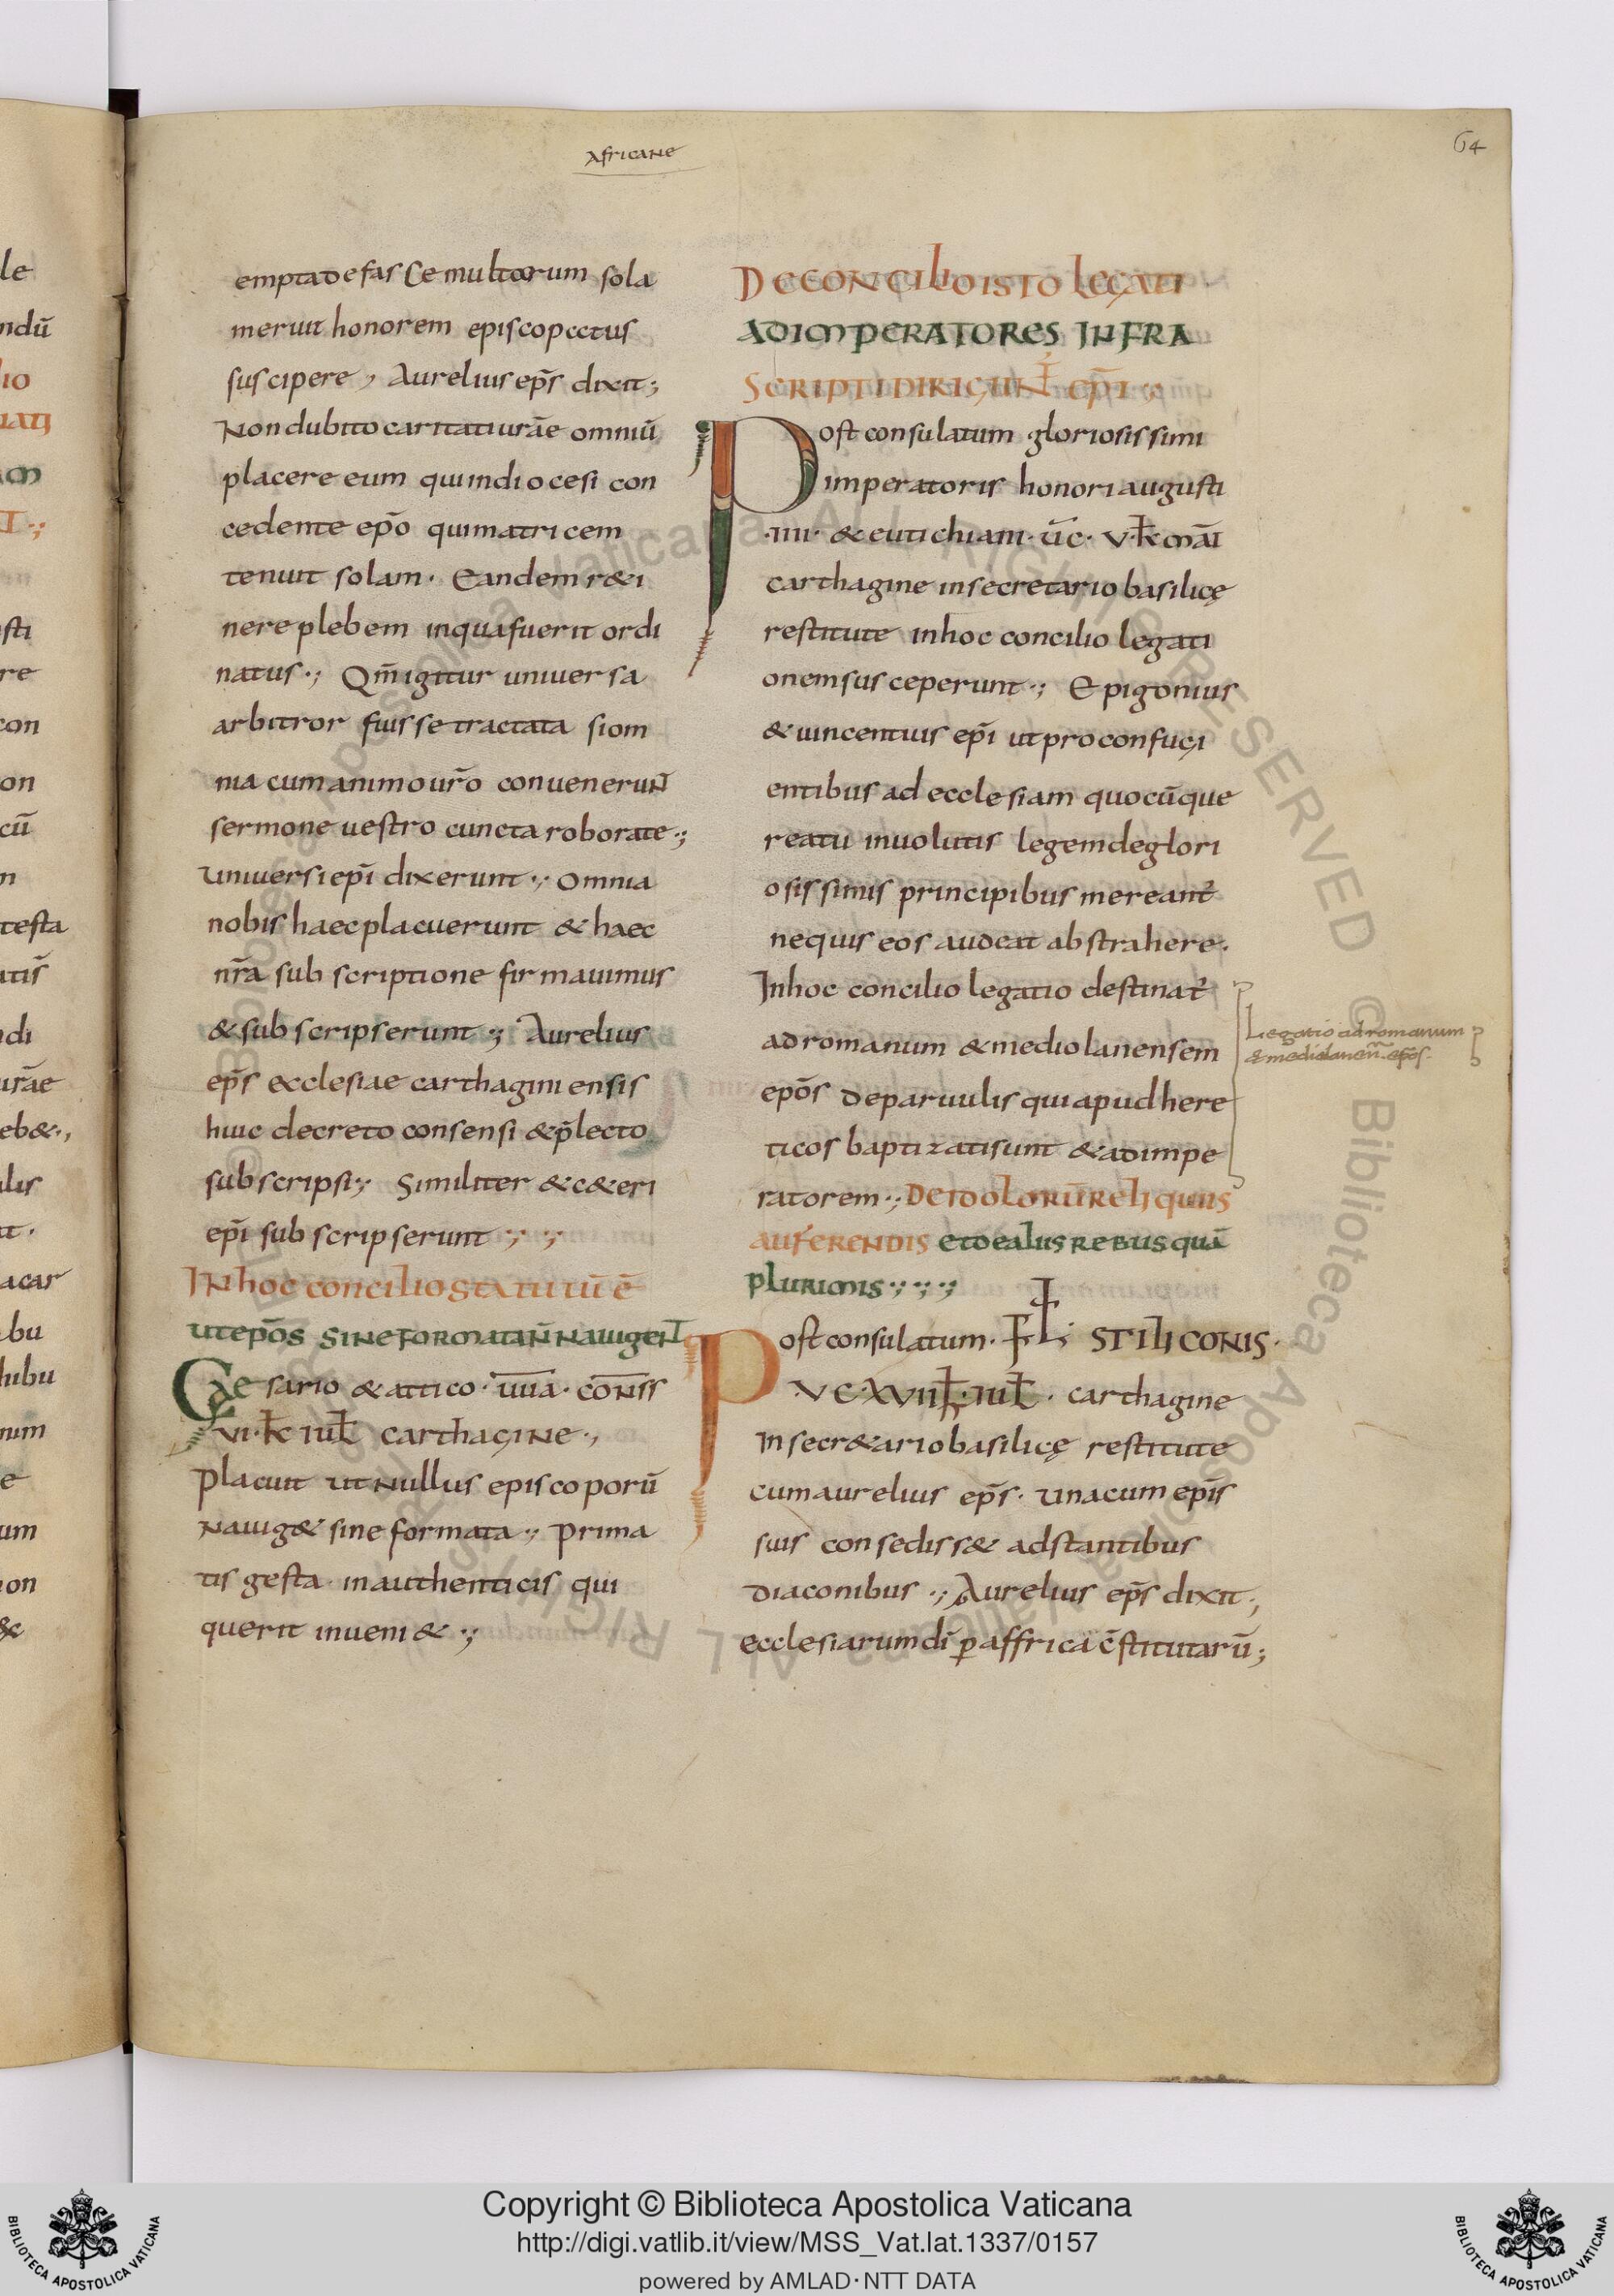 Africane
64
emptadefasce multorum sola
meruit honorem episcopatus
suscipere, Aurelius ep̄s dixit;
Non dubito caritati ur̄ae omniū
placere eum qui in diocesi con
cedente ep̄o qui matricem
tenuit solam. Eandem r&i
nere plebem in qua fuerit ordi
natus.; Qm̄ igitur uniuersa
arbitror fuisse tractata si om
nia cum animo ur̄o conuenerun̄
sermone uestro cuncta roborate.;
Uniuersi ep̄i dixerunt.; Omnia
nobis haec placuerunt & haec
nr̄a subscriptione firmauimus
& subscripserunt.; Aurelius
ep̄s ecclesiae carthaginiensis
huic decreto consensi & p̄lecto
subscripsi.; Similiter & c&eri
ep̄i subscripserunt.; .;
IN hoc concilio statutū ē
ut ep̄os sine formata n̄ nauigent
Caesario & attico. uūa. con̄ss
vi. kƚ iuƚ carthagine.,
Placuit ut nullus episcoporū
nauig& sine formata.; prima
tis gesta in authenticis qui
querit inueni&.;
DE CONCILIO ISTO LEGATI
AD IMPERATORES INFRA
SCRIPTI DIRIGUNT EP̄I.;
Post consulatum gloriosissimi
imperatoris honori augusti
.iiii. & eutichiani. ūc. v. kƚ māi
carthagine in secretario basilicę
restitute in hoc concilio legati
onem susceperunt.; Epigonius
& uincentius ep̄i ut pro confugi
entibus ad ecclesiam quocūque
reatu inuolutis legem de glori
osissimis principibus mereant̄
nequis eos audeat abstrahere.
In hoc concilio legatio destinat̄
ad romanum & mediolanensem
Legatio ad romanum
& mediolanen̄. ep̄os.
epōs de paruulis qui apud here
ticos baptizati sunt & ad impe
ratorem.; DE IDOLORŪ RELIQUIIS
AUFERENDIS et de aliis rebus quā
plurimis.; .; .;
Post consulatum. FL. STILICONIS.
VC. XVII kƚ. iuƚ. carthagine
In secr&ario basilicę restitute
cum aurelius ep̄s. una cum ep̄is
suis consediss& adstantibus
diaconibus.; Aurelius ep̄s dixit.;
ecclesiarum dī ꝑ affricā c̄stitutarū;
Copyright © Biblioteca Apostolica Vaticana
http://digi.vatlib.it/view/MSS_Vat.lat.1337/0157
powered by AMLAD·NTT DATA